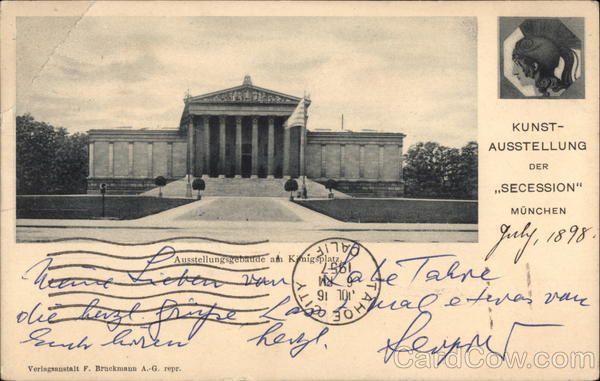 KUNST-
AUSSTELLUNG
DER
„SECESSION"
MÜNCHEN
July, 1898.
Ausstellungsgebäude am Königsplatz.
TAHOE CITY
CALIF.
JUL 16
PM
1957
Meine Lieben von Lake Tahoe
die herzl. Grüße Lass mal etwas von
Euch hören herzl.
Verlagsanstalt F. Bruckmann A.-G. repr.
CardCow.com